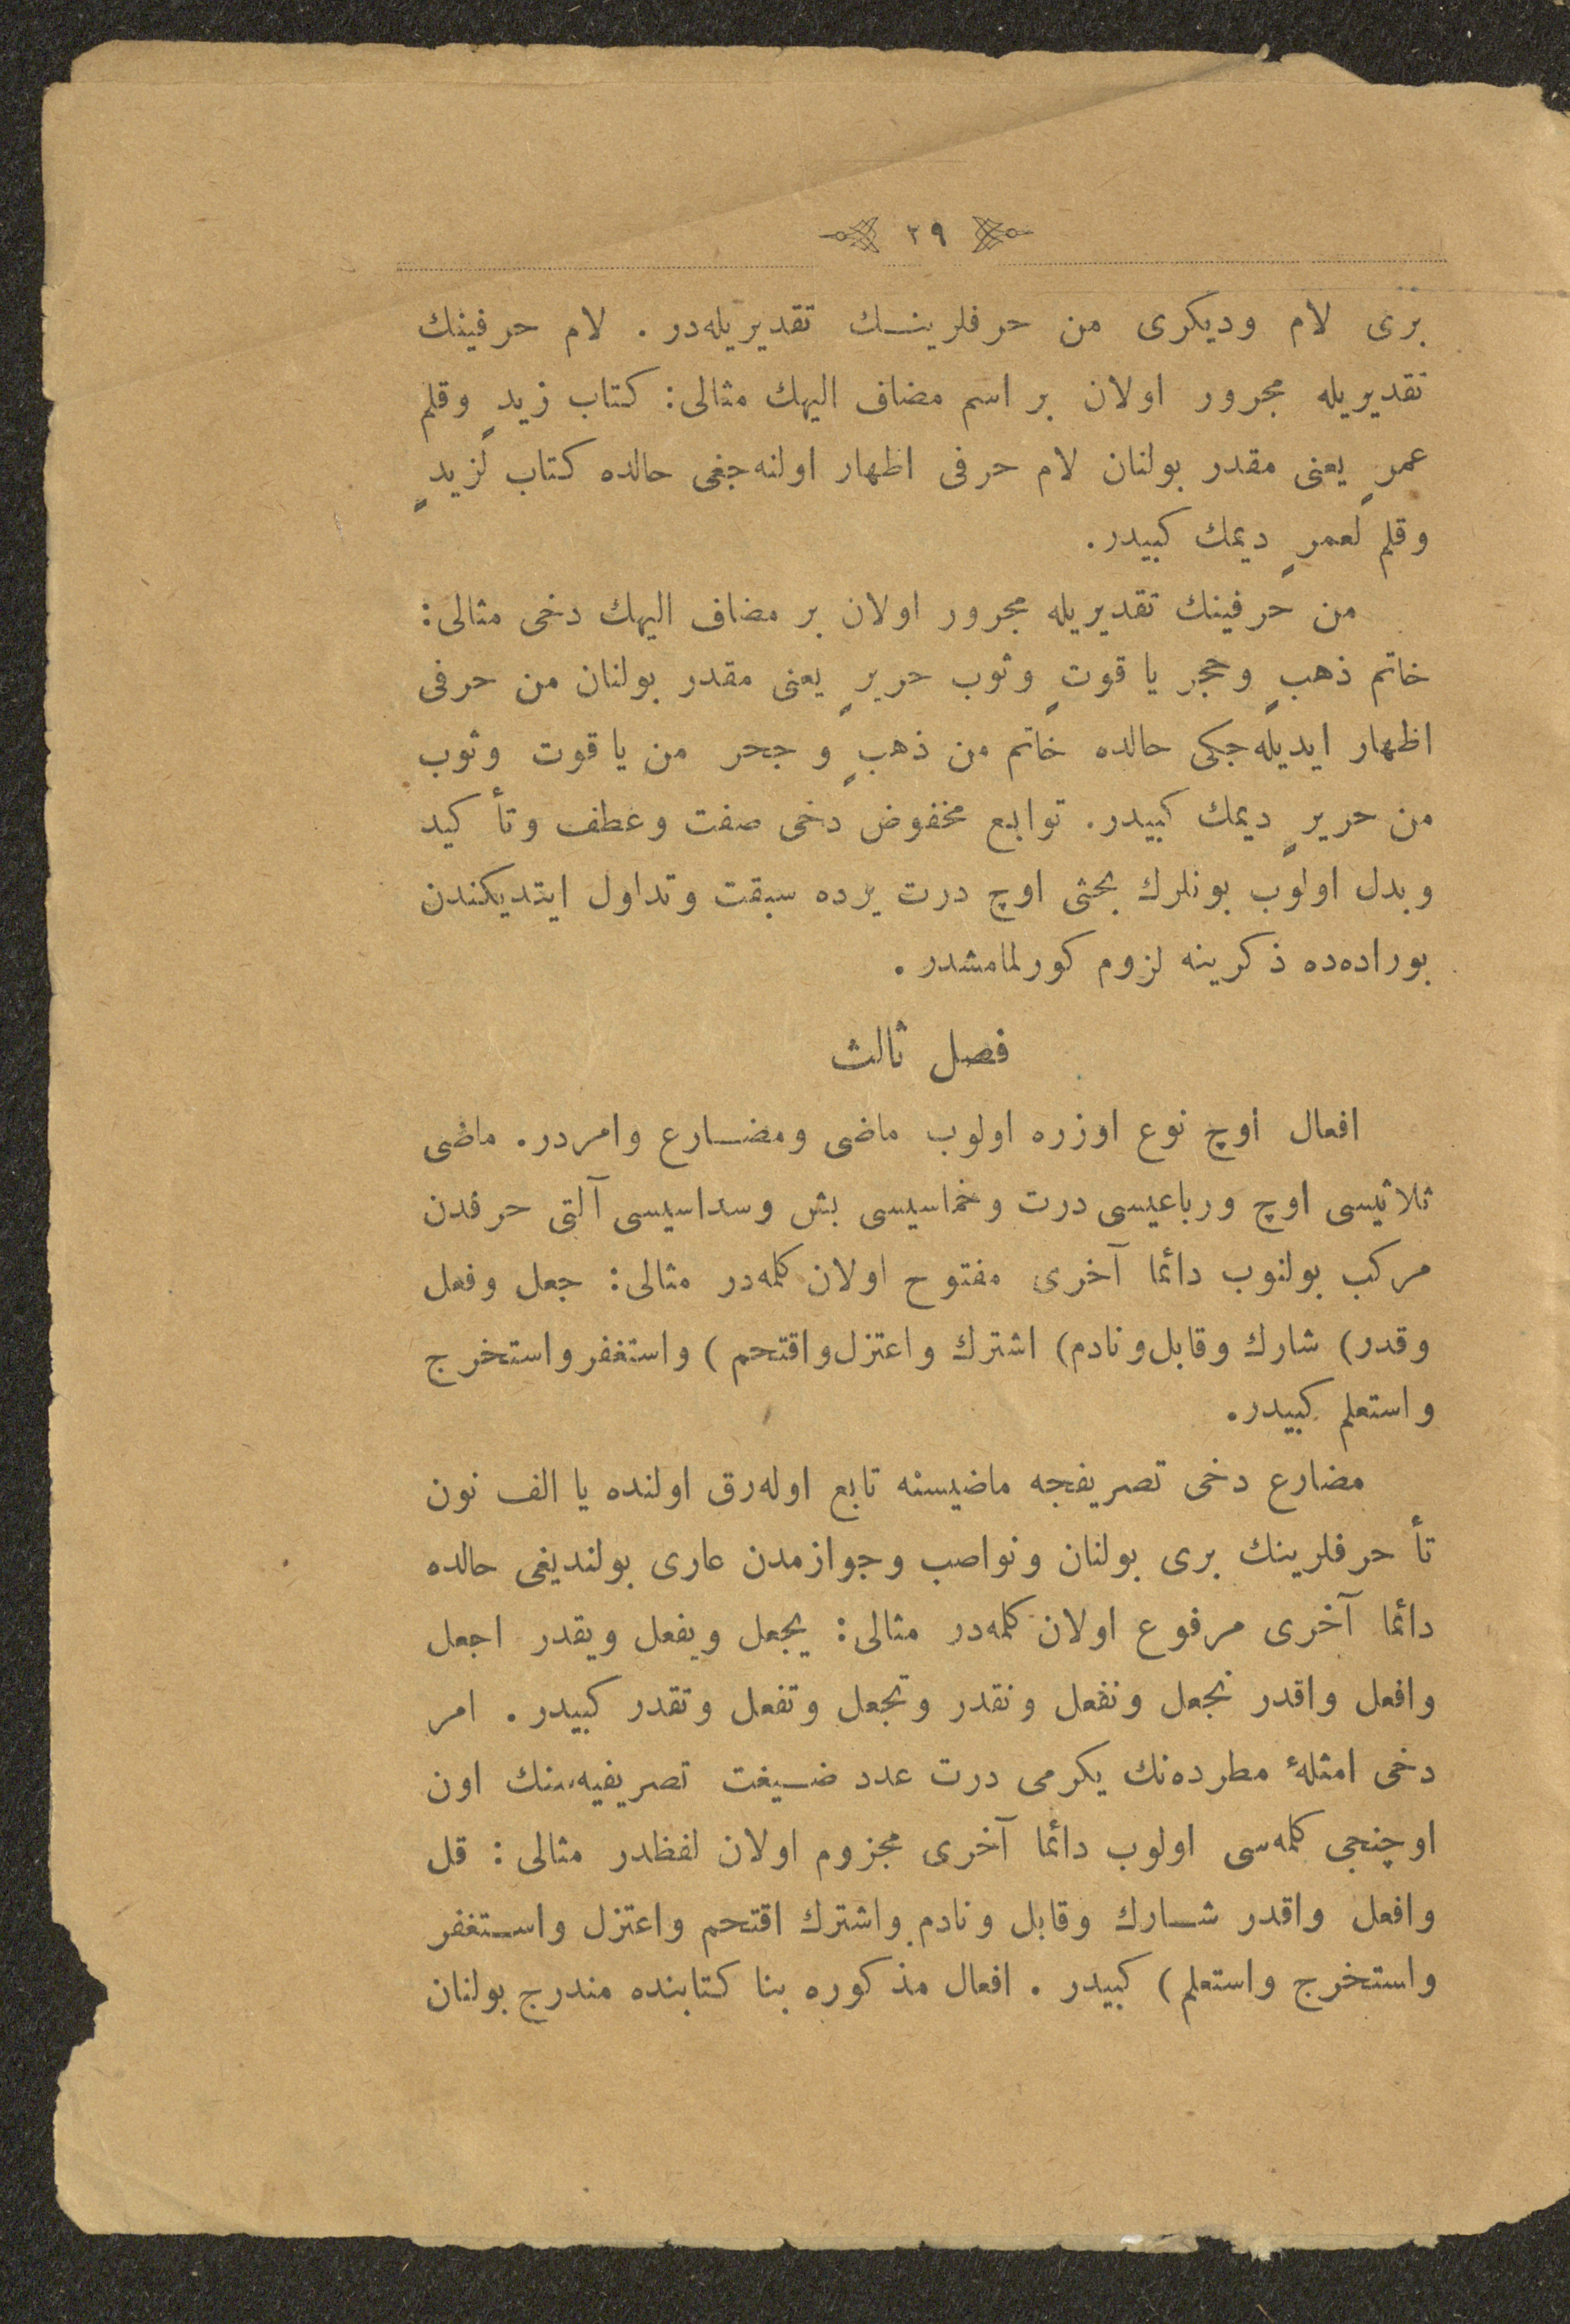 ٢٩
برى لام وديكرى من حرفلرينـك تقديريله‌در . لام حرفينك
تقديريله مجرور اولان بر اسم مضاف اليهك مثالى : كتاب زيدٍ وقلم
عمرٍ يعنى مقدر بولنان لام حرفى اظهار اولنه‌جغى حالده كتاب لزيدٍ
وقلم لعمرٍ ديمك كبيدر .
من حرفينك تقديريله مجرور اولان بر مضاف اليهك دخى مثالى :
خاتم ذهبٍ وحجر ياقوتٍ وثوب حريرٍ يعنى مقدر بولنان من حرفى
اظهار ايديله‌جكى حالده خاتم من ذهبٍ وجحر من ياقوت وثوب
من حريرٍ ديمك كبيدر . توابع مخفوض دخى صفت وعطف وتأكيد
وبدل اولوب بونلرك بحثى اوچ درت يرده سبقت وتداول ايتديكندن
بوراده‌ده ذكرينه لزوم كورلمامشدر .
فصل ثالث
افعال اوچ نوع اوزره اولوب ماضى ومضـارع وامردر . ماضى
ثلاثيسى اوچ ورباعيسى درت وخماسيسى بش وسداسيسى آلتى حرفدن
مركب بولنوب دائما آخرى مفتوح اولان كلمه‌در مثالى : جعل وفعل
وقدر ) شارك وقابل ونادم ) اشترك واعتزل واقتحم ) واستغفر واستخرج
واستعلم كبيدر .
مضارع دخى تصريفجه ماضيسنه تابع اوله‌رق اولنده يا الف نون
تأ حرفلرينك برى بولنان ونواصب وجوازمدن عارى بولنديغى حالده
دائما آخرى مرفوع اولان كلمه‌در مثالى : يجعل ويفعل ويقدر اجعل
وافعل واقدر نجعل ونفعل ونقدر وتجعل وتفعل وتقدر كبيدر . امر
دخى امثلهٔ مطرده‌نك يكرمى درت عدد ضـيغت تصريفيه‌سنك اون
اوچنجى كلمه‌سى اولوب دائما آخرى مجزوم اولان لفظدر مثالى : قل
وافعل واقدر شـارك وقابل ونادم واشترك اقتحم واعتزل واسـتغفر
واستخرج واستعلم ) كبيدر . افعال مذكوره بنا كتابنده مندرج بولنان